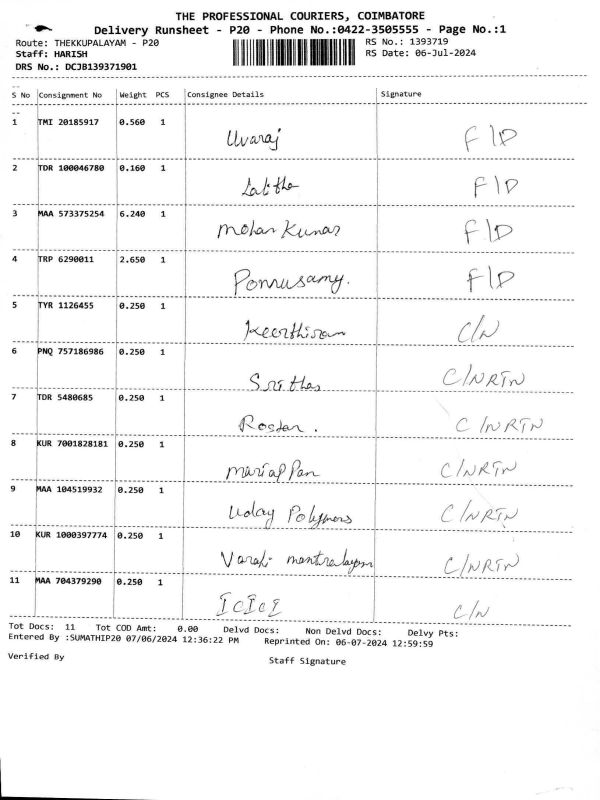 THE PROFESSIONAL COURIERS, COIMBATORE
Delivery Runsheet - P20 - Phone No.:0422-3505555 - Page No.:1
Route: THEKKUPALAYAM - P20 RS No.: 1393719
Staff: HARISH RS Date: 06-Jul-2024
DRS No.: DCJB139371901
S No Consignment No Weight PCS Consignee Details Signature
1 TMI 20185917 0.560 1 Uvaraj F/D
2 TDR 100046780 0.160 1 Lalitha F/D
3 MAA 573375254 6.240 1 Mohan Kumar F/D
4 TRP 6290011 2.650 1 Ponnusamy. F/D
5 TYR 1126455 0.250 1 Keerthiram C/N
6 PNQ 757186986 0.250 1 C/NRTN
7 TDR 5480685 0.250 1 C/NRTN
8 KUR 7001828181 0.250 1 Mariappan C/NRTN
9 MAA 104519932 0.250 1 Uday Polymers C/NRTN
10 KUR 1000397774 0.250 1 Varahi mantralayam C/NRTN
11 MAA 704379290 0.250 1 ICICI C/N
Tot Docs: 11 Tot COD Amt: 0.00 Delvd Docs: Non Delvd Docs: Delvy Pts:
Entered By :SUMATHIP20 07/06/2024 12:36:22 PM Reprinted On: 06-07-2024 12:59:59
Verified By Staff Signature